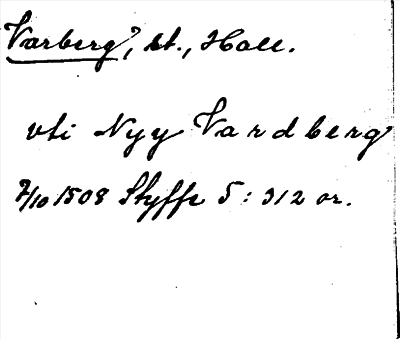 Varberg, st., Hall.
vti Nyy Vardberg
7/10 1508 Styffe 5: 312 or.